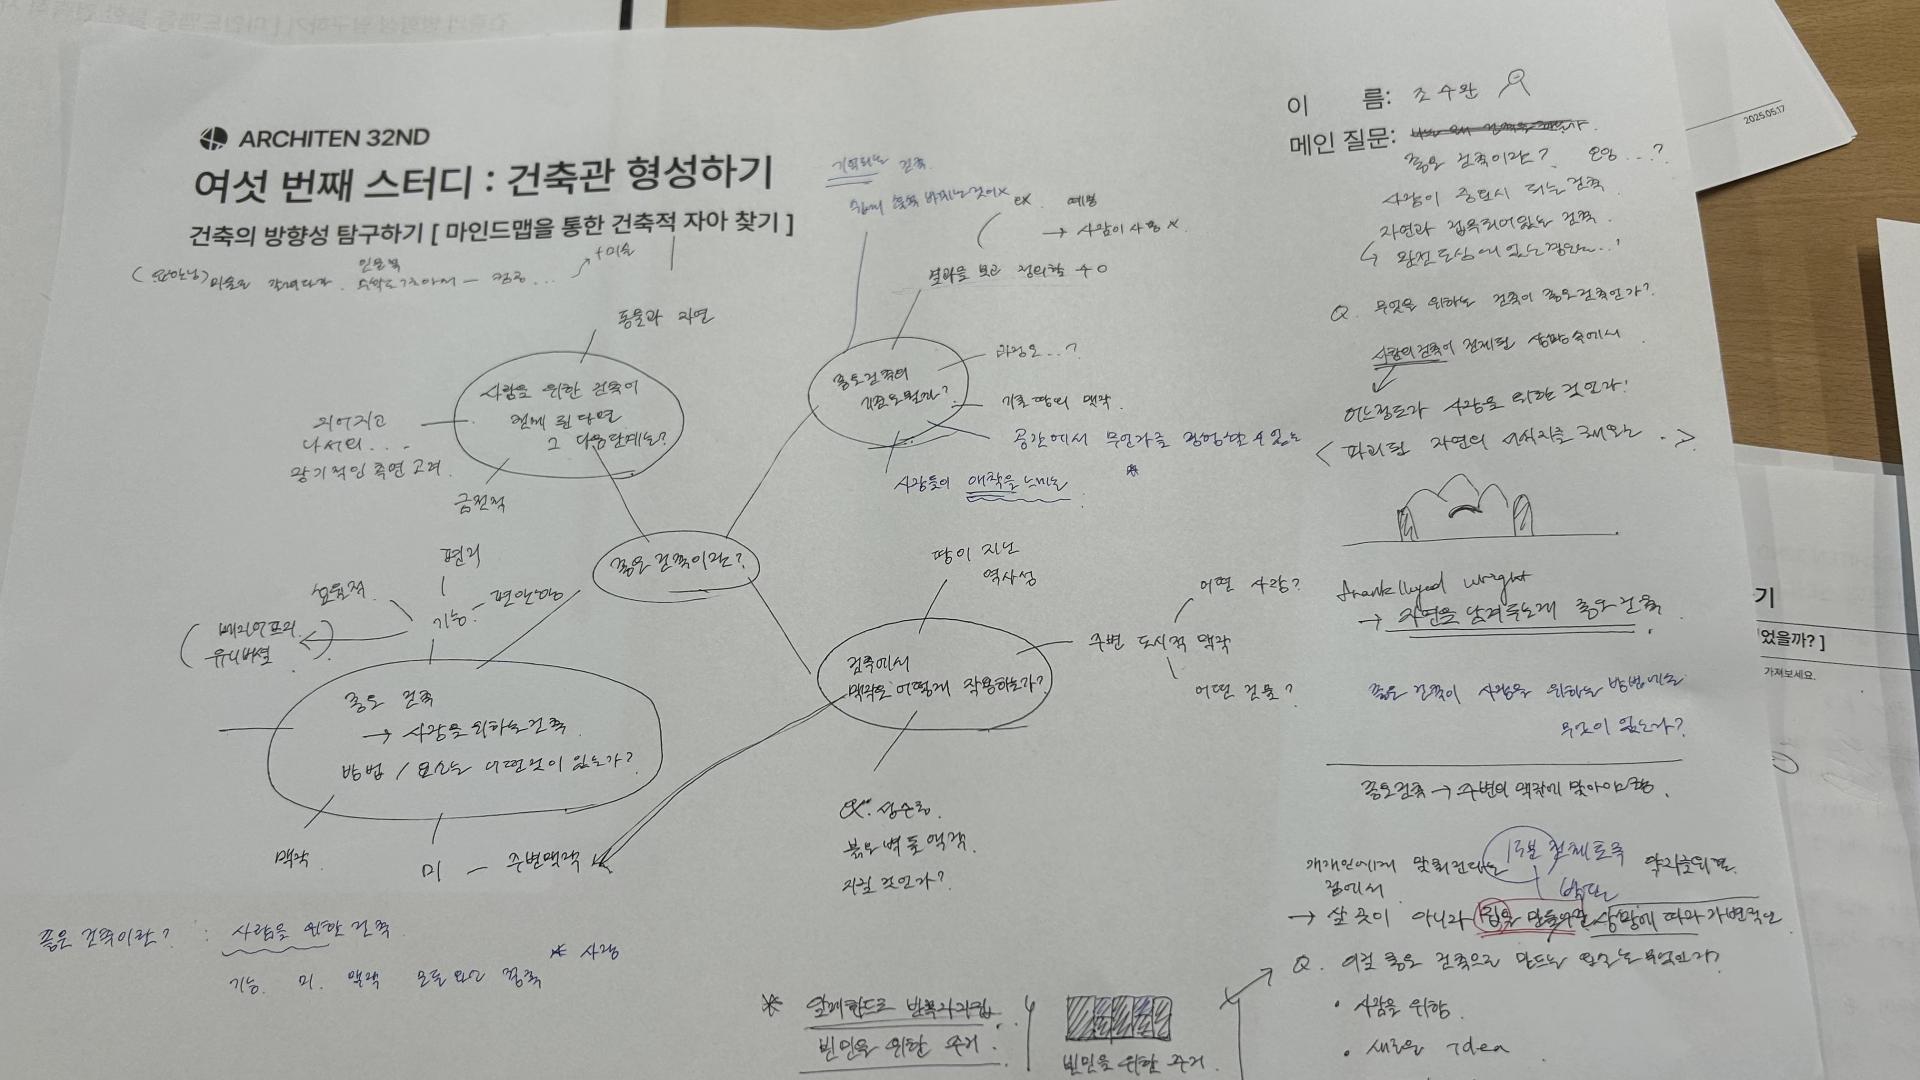 ARCHITEN 32ND
여섯 번째 스터디 : 건축관 형성하기
건축의 방향성 탐구하기 [ 마인드맵을 통한 건축적 자아 찾기 ]
+미술
이 름: 조수완
메인 질문:
좋은 건축이란?
사람이 중요시 되는 건축
자연과 접목되어있는 건축
Q. 무엇을 위하는 건축이 좋은건축인가?
사람의 건축이 전제된 상황 속에서
어느정도가 사람을 위한 것인가?
파괴된 자연의 서식지를 채우는
frank lloyed wright
→ 자연을 남겨두는게 좋은 건축
좋은 건축이 사람을 위하는 방법에는
무엇이 있는가?
좋은건축 → 주변의 맥락에 맞아야함.
→ 살 곳이 아니라 집을 만들어줌 상황에 따라 가변적인
Q. 이걸 좋은 건축으로 만드는 요소는 무엇인가?
• 사람을 위함.
• 새로운 idea
기억되는 건축
ex. 예명
→ 사람이 사용 X
결과를 보고 정의할 수 O
좋은건축의
기준은 뭘까?
과정은...?
기존 땅의 맥락.
공간에서 무언가를 경험할 수 있는
사람들이 애착을 느끼는
동물과 자연
사람을 위한 건축이
전제 된다면
그 다음단계는?
지어지고
나서의 ...
장기적인 측면 고려.
금전적
좋은 건축이란?
편리
효율적
기능 - 편안함
( 배리어프리
유니버셜 )
좋은 건축
→ 사람을 위하는 건축
방법 / 요소는 어떤것이 있는가?
맥락
미 — 주변맥락
땅이 지닌
역사성
건축에서
맥락은 어떻게 작용하는가?
주변 도시적 맥락
어떤 사람?
어떤 건물?
ex. 성수동
붉은 벽돌 맥락
지킬 것인가?
좋은 건축이란? : 사람을 위한 건축
기능. 미. 맥락 모두 * 사람
빈민을 위한 주거.
빈민을 위한 주거.
2025.05.17
기
었을까? ]
가져보세요.